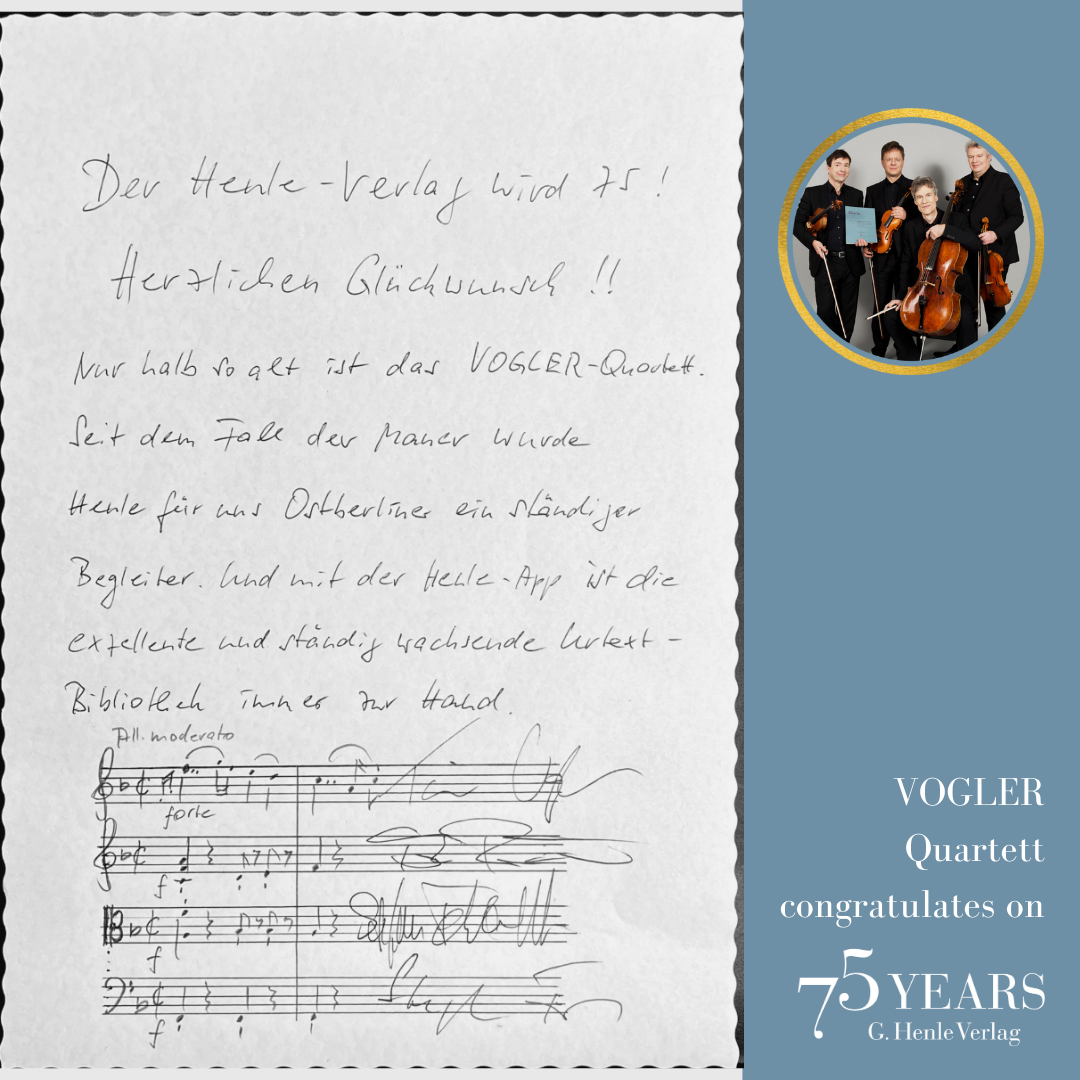 Der Henle-Verlag wird 75!
Herzlichen Glückwunsch!!
Nur halb so alt ist das VOGLER-Quartett.
Seit dem Fall der Mauer wurde
Henle für uns Ostberliner ein ständiger
Begleiter. Und mit der Henle-App ist die
exzellente und ständig wachsende Urtext-
Bibliothek immer zur Hand.
All. moderato
forte
f
f
f
VOGLER
Quartett
congratulates on
75 YEARS
G. Henle Verlag